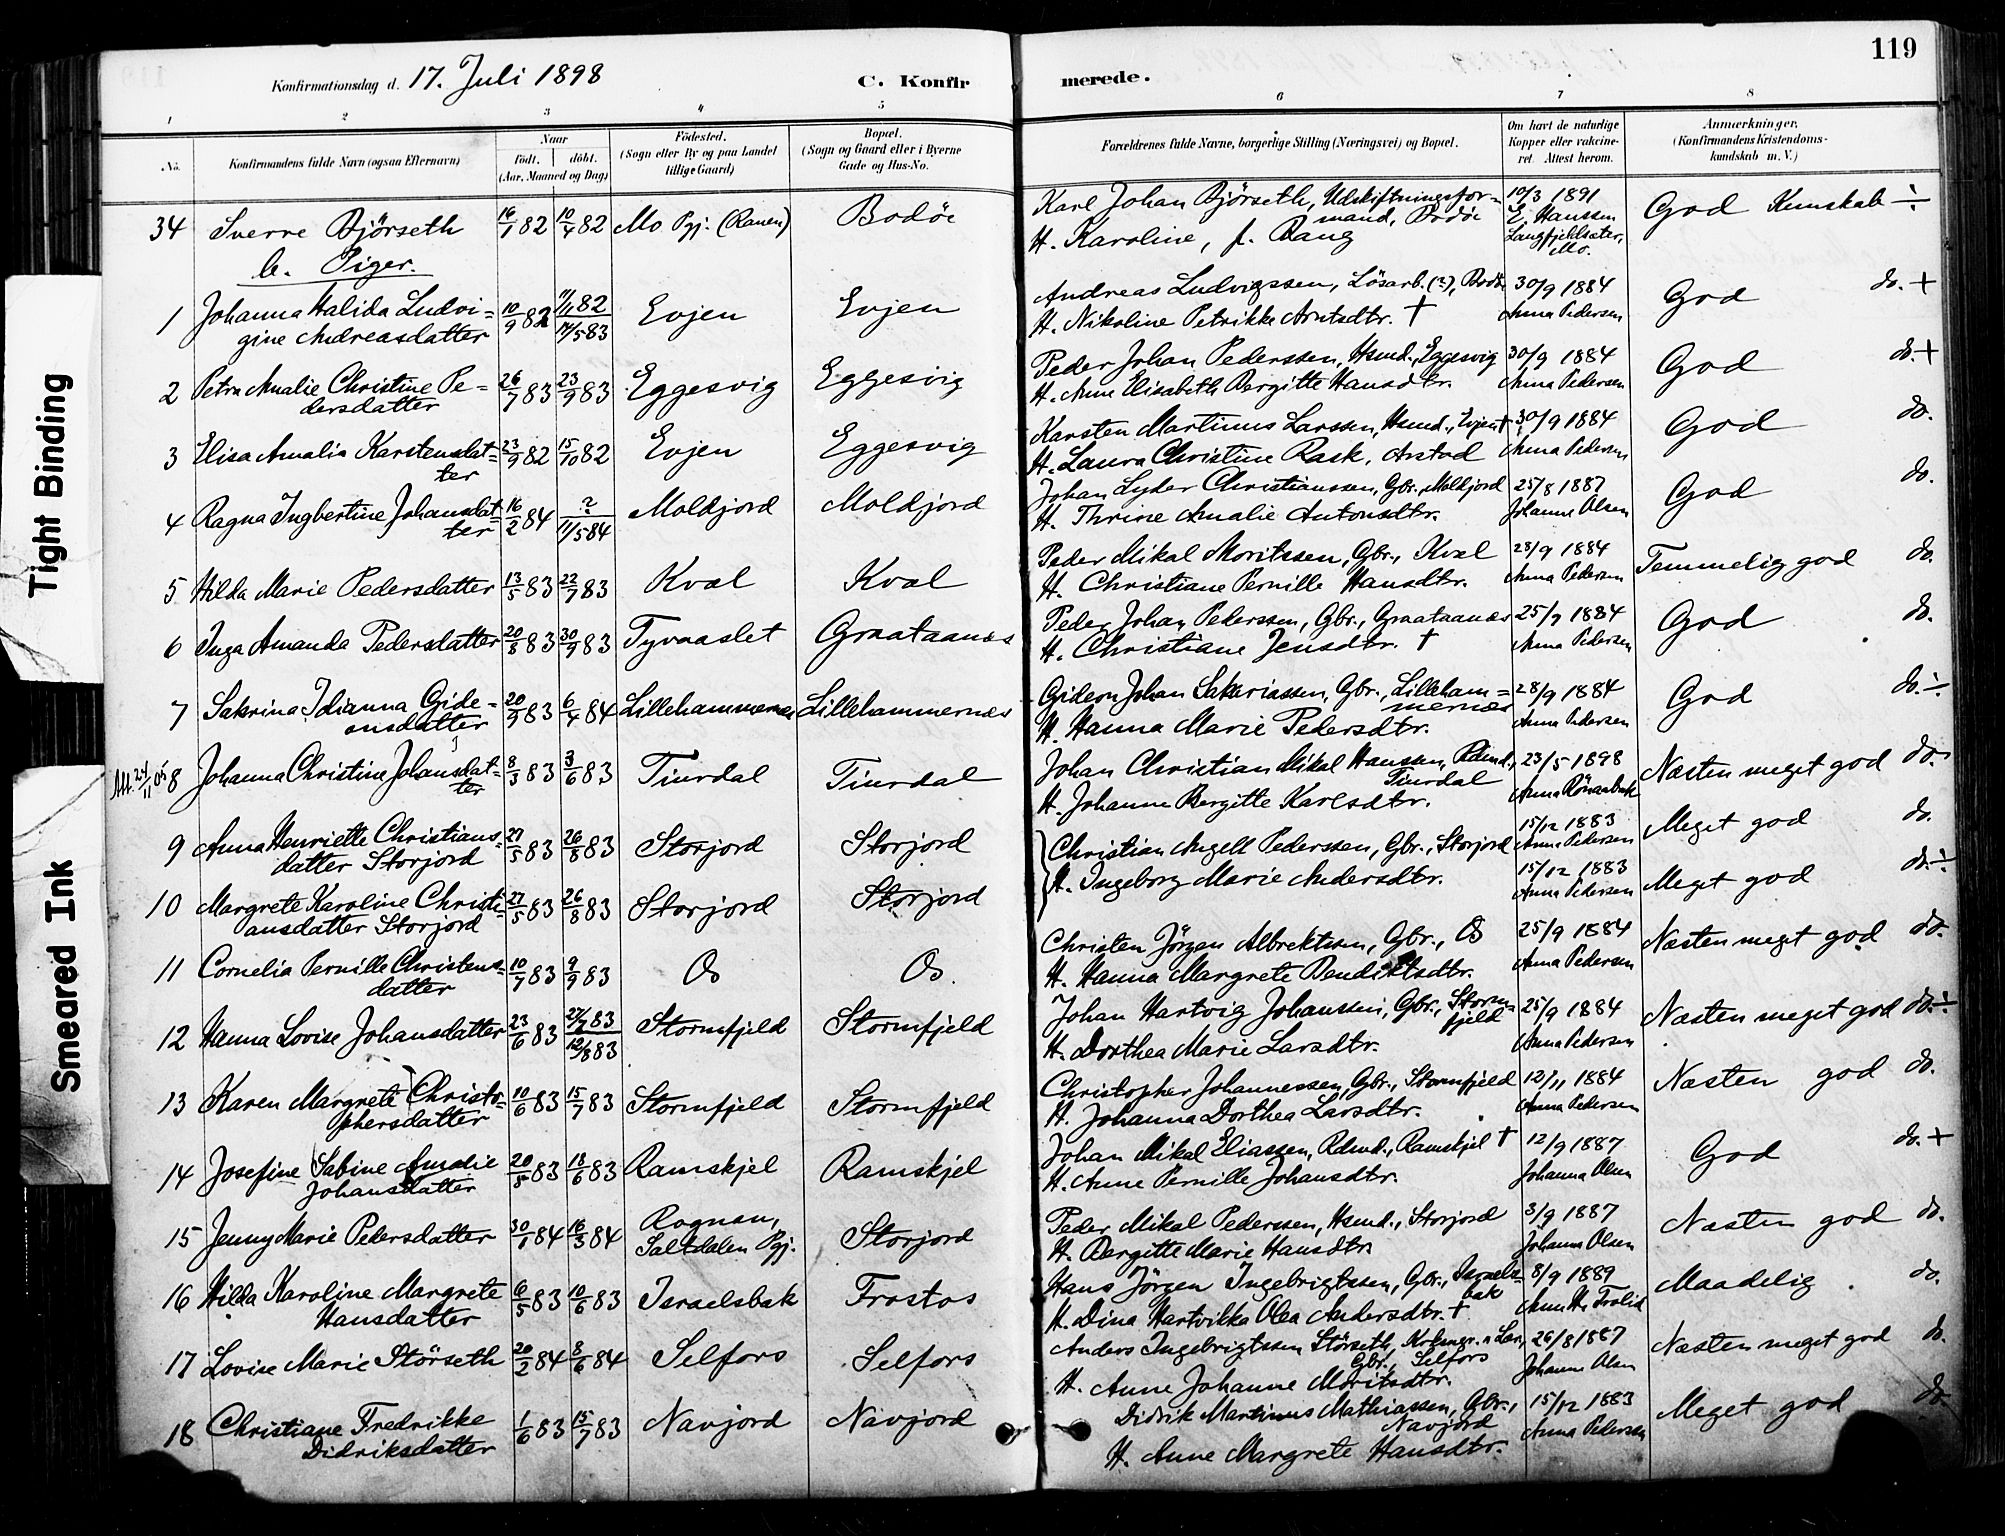 119
Konfirmationsdag d. 17. Juli 1898
C. Konfirmerede.
1 2 3 4 5 6 7 8
No.
Konfirmandens fulde Navn (ogsaa Efternavn)
Naar
født. døbt.
(Aar, Maaned og Dag)
Fødested.
(Sogn eller By og paa Landet
tillige Gaard)
Bopæl.
(Sogn og Gaard eller i Byerne
Gade og Hus-No.
Forældrenes fulde Navne, borgerlige Stilling (Næringsvei) og Bopæl.
Om havt de naturlige
Kopper eller vakcine-
ret. Attest herom.
Anmærkninger.
(Konfirmandens Kristendoms-
kundskab m. V.)
34 Sverre Björseth 16/1 82 10/4 82 Mo Pgj. (Ranen) Bodöe
Karl Johan Björseth, Udskiftningsfor-
mand, Bodöe
H. Karoline, f. Bang
10/3 1891
E. Hanssen
Langfjeldsæter,
Mo.
God Kunskab ÷
b. Piger.
1 Johanna Halida Ludvi-
gine Andreasdatter 10/9 82 11/11 82 14/5 83 Evjen Evjen
Andreas Ludvigssen, Lösarb. (?), Bodö
H. Nikoline Petrikke Arntsdtr. †
30/9 1884
Anna Pedersen
God do. +
2 Petra Amalie Christine Pe-
dersdatter 26/7 83 23/9 83 Eggesvig Eggesvig
Peder Johan Pederssen, Hsmd., Eggesvig
H. Anne Elisabeth Bergitte Hansdtr.
30/9 1884
Anna Pedersen
God do. +
3 Elisa Amalia Karstensdat-
ter 23/9 82 15/10 82 Evjen Eggesvig
Karsten Martinus Larssen, Hsmd., Evjen †
H. Laura Christine Rask, Arstad
30/9 1884
Anna Pedersen
God do.
4 Ragna Ingbertine Johansdat-
ter 16/2 84 ? 11/5 84 Moldjord Moldjord
Johan Lyder Christianssen, Gbr., Moldjord
H. Thrine Amalie Antonsdtr.
25/8 1887
Johanne Olsen
God do.
5 Hilda Marie Pedersdatter 13/5 83 22/7 83 Kvæl Kvæl
Peder Mikal Moritssen, Gbr., Kvæl
H. Christiane Pernille Hansdtr.
28/9 1884
Anna Pedersen
Temmelig god do.
6 Inga Amanda Pedersdatter 20/8 83 30/9 83 Tyvaaslet Graataanæs
Peder Johan Pederssen, Gbr., Graataanæs
H. Christiane Jensdtr. †
25/9 1884
Anna Pedersen
God do.
7 Sakrina Idianna Gide-
onsdatter 20/9 83 6/4 84 Lillehammernæs Lillehammernæs
Gideon Johan Sakariassen, Gbr., Lilleham-
mernæs
H. Hanna Marie Pedersdtr.
28/9 1884
Anna Pedersen
God do. ÷
Att. 24/11 05 8 Johanna Christine Johansdat-
ter 8/3 83 3/6 83 Tinrdal Tinrdal
Johan Christian Mikal Hanssen, Rdmd.,
Tinrdal
H. Johanne Bergitte Karlsdtr.
23/5 1898
Anna
Næsten meget god do.
9 Anna Henriette Christians-
datter Storjord 27/5 83 26/8 83 Storjord Storjord
Christian Angell Pederssen, Gbr., Storjord
15/12 1883
Anna Pedersen
Meget god do.
10 Margrete Karoline Christi-
ansdatter Storjord 27/5 83 26/8 83 Storjord Storjord
H. Ingeborg Marie Andersdtr.
15/12 1883
Anna Pedersen
Meget god do. ÷
11 Cornelia Pernille Christens-
datter 10/7 83 9/9 83 Os Os
Christen Jörgen Albrektsen, Gbr., Os
H. Hanna Margrete Bendiktsdtr.
25/9 1884
Anna Pedersen
Næsten meget god do.
12 Hanna Lovise Johansdatter 23/6 83 27/7 83 12/8 83 Stormfjeld Stormfjeld
Johan Hartvig Johanssen, Gbr., Storm-
fjeld
H. Dorthea Marie Larsdtr.
25/9 1884
Anna Pedersen
Næsten meget god do. ÷
13 Karen Margrete Christo-
phersdatter 10/6 83 15/7 83 Stormfjeld Stormfjeld
Christopher Johannessen, Gbr., Stormfjeld
H. Johanna Dorthea Larsdtr.
12/11 1884
Anna Pedersen
Næsten god do.
14 Josefine Sabine Amalie
Johansdatter 20/5 83 18/6 83 Ramskjel Ramskjel
Johan Mikal Eliassen, Rdmd., Ramskjel †
H. Anne Pernille Johansdtr.
12/9 1887
Johanna Olsen
God do. +
15 Jenny Marie Pedersdatter 30/1 84 16/3 84 Rognan,
Saltdalen Pgj. Storjord
Peder Mikal Pederssen, Hsmd., Storjord
H. Bergitte Marie Hansdtr.
3/9 1887
Johanna Olsen
Næsten god do.
16 Hilda Karoline Margrete
Hansdatter 6/5 83 10/6 83 Israelsbak Frostos
Hans Jörgen Ingebrigtssen, Gbr., Israels-
bak
H. Dina Hartvikka Olea Andersdtr. †
8/9 1889
Anne H. Trolid
Maadelig do.
17 Lovise Marie Störseth 20/2 84 8/6 84 Selfors Selfors
Anders Ingebrigtssen Störseth,
Gbr., Selfors
H. Anne Johanne Moritsdtr.
26/8 1887
Johanne Olsen
Næsten meget god do.
18 Christiane Fredrikke
Didriksdatter 1/6 83 15/7 83 Navjord Navjord
Didrik Martinus Mathiassen, Gbr.,
Navjord
H. Anne Margrete Hansdtr.
15/12 1883
Anna Pedersen
Meget god do.
Tight Binding
Smeared Ink